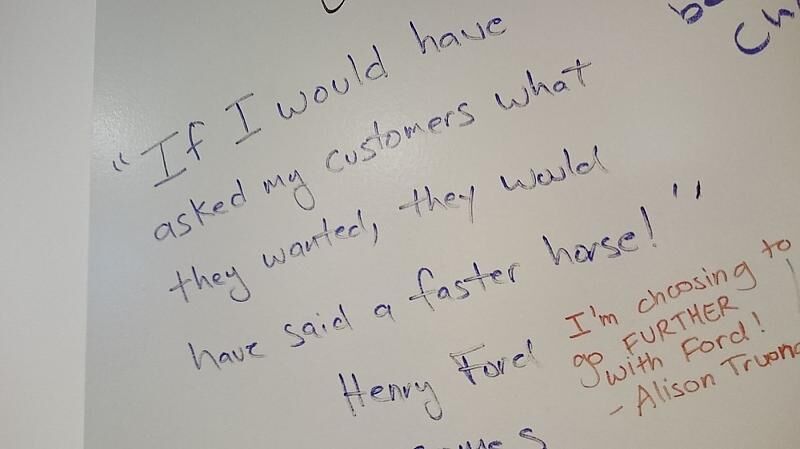 "If I would have
asked my customers what
they wanted, they would
have said a faster horse!"
Henry Ford
I'm choosing to
go FURTHER
with Ford!
- Alison Truong